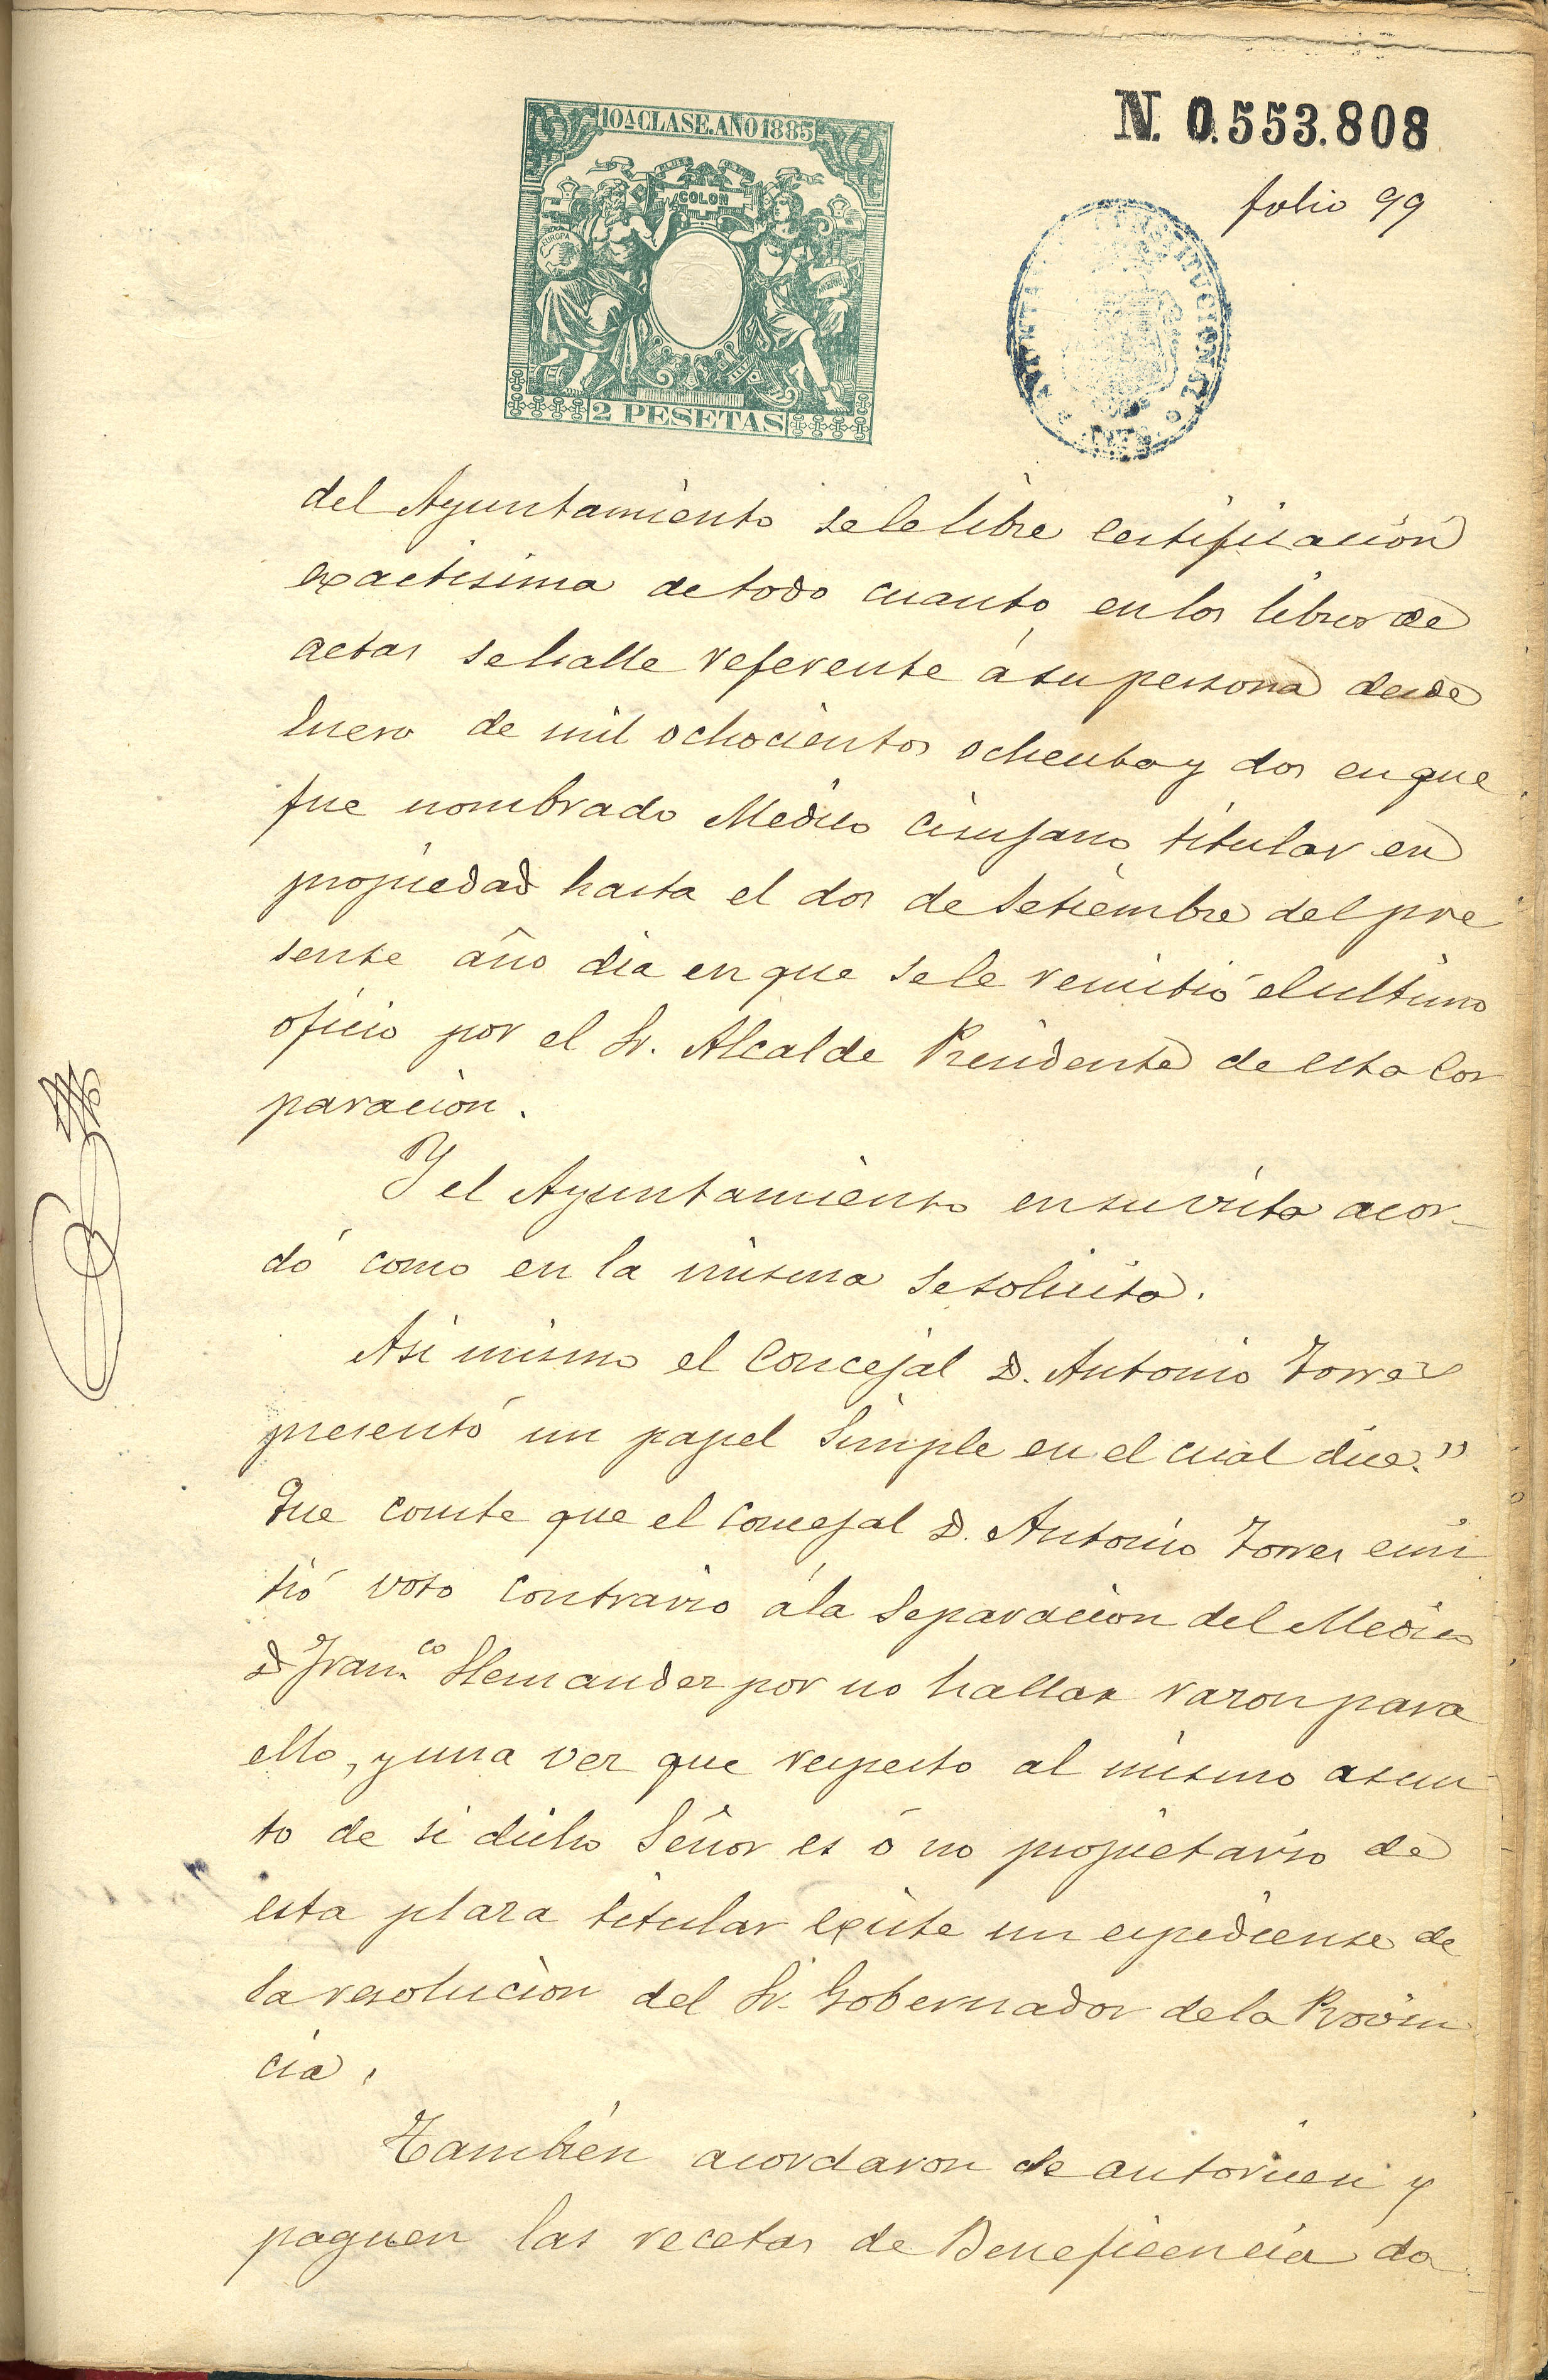 10ª CLASE. AÑO 1885
N. 0.553.808
folio 99
COLON
EUROPA
CONSTITUCIONAL
2 PESETAS
del Ayuntamiento se le libre certificación
exactisima de todo cuanto en los libros de
actas se halle referente á su persona desde
Enero de mil ochocientos ochenta y dos en que
fue nombrado Medico cirujano titular en
propiedad hasta el dos de Setiembre del pre
sente año dia en que se le remitió el ultimo
oficio por el Sr. Alcalde Presidente de esta Cor
poracion.
Y el Ayuntamiento en su vista acor-
dó como en la misma se solicita.
Asi mismo el Concejal D. Antonio Torres
presentó un papel simple en el cual dice."
Que conste que el Concejal D. Antonio Torres emi
tió voto contrario á la separacion del Medico
D Fran.co Hernandez por no hallar razon para
ello, y una vez que respecto al mismo asun
to de si dicho Señor es ó no propietario de
esta plaza titular existe un espediente de
la resolucion del Sr. Gobernador de la Provin
cia.
Tambien acordaron se autoricen y
paguen las recetas de Beneficencia da